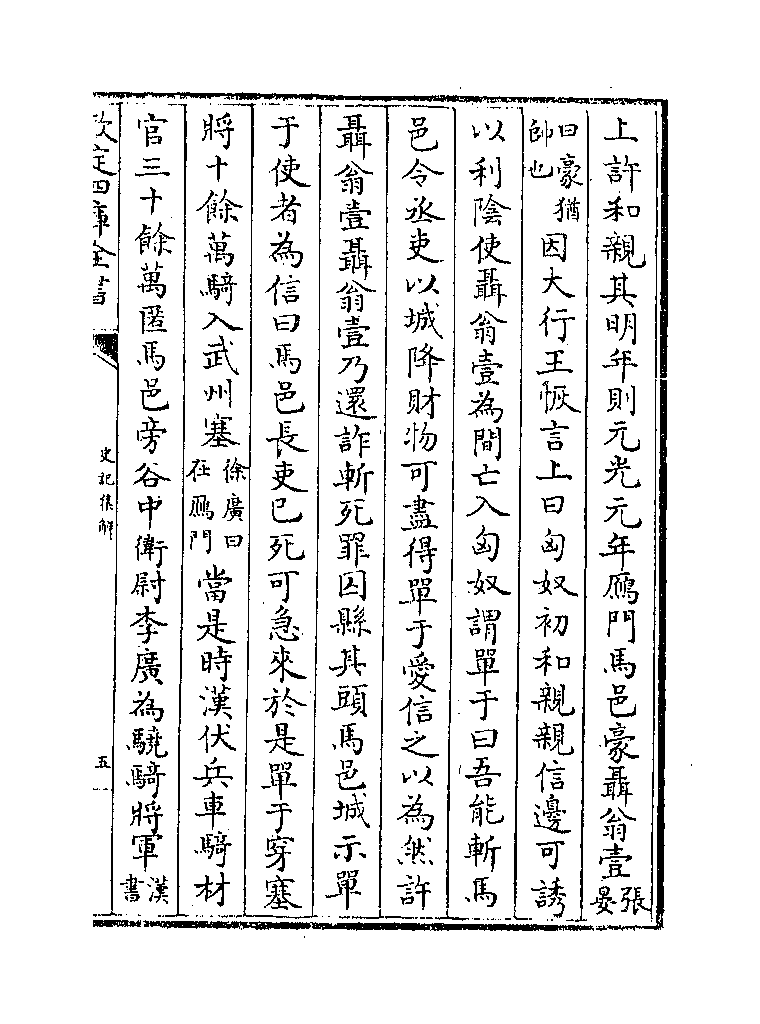 上許和親其明年則元光元年鴈門馬邑豪聶翁壹張晏
曰豪猶帥也因大行王恢言上曰匈奴初和親親信邊可誘
以利陰使聶翁壹為間亡入匈奴謂單于曰吾能斬馬
邑令丞吏以城降財物可盡得單于愛信之以為然許
聶翁壹聶翁壹乃還詐斬死罪囚縣其頭馬邑城示單
于使者為信曰馬邑長吏已死可急來於是單于穿塞
將十餘萬騎入武州塞徐廣曰在鴈門當是時漢伏兵車騎材
官三十餘萬匿馬邑旁谷中衛尉李廣為驍騎將軍漢書
欽定四庫全書
史記集解
五